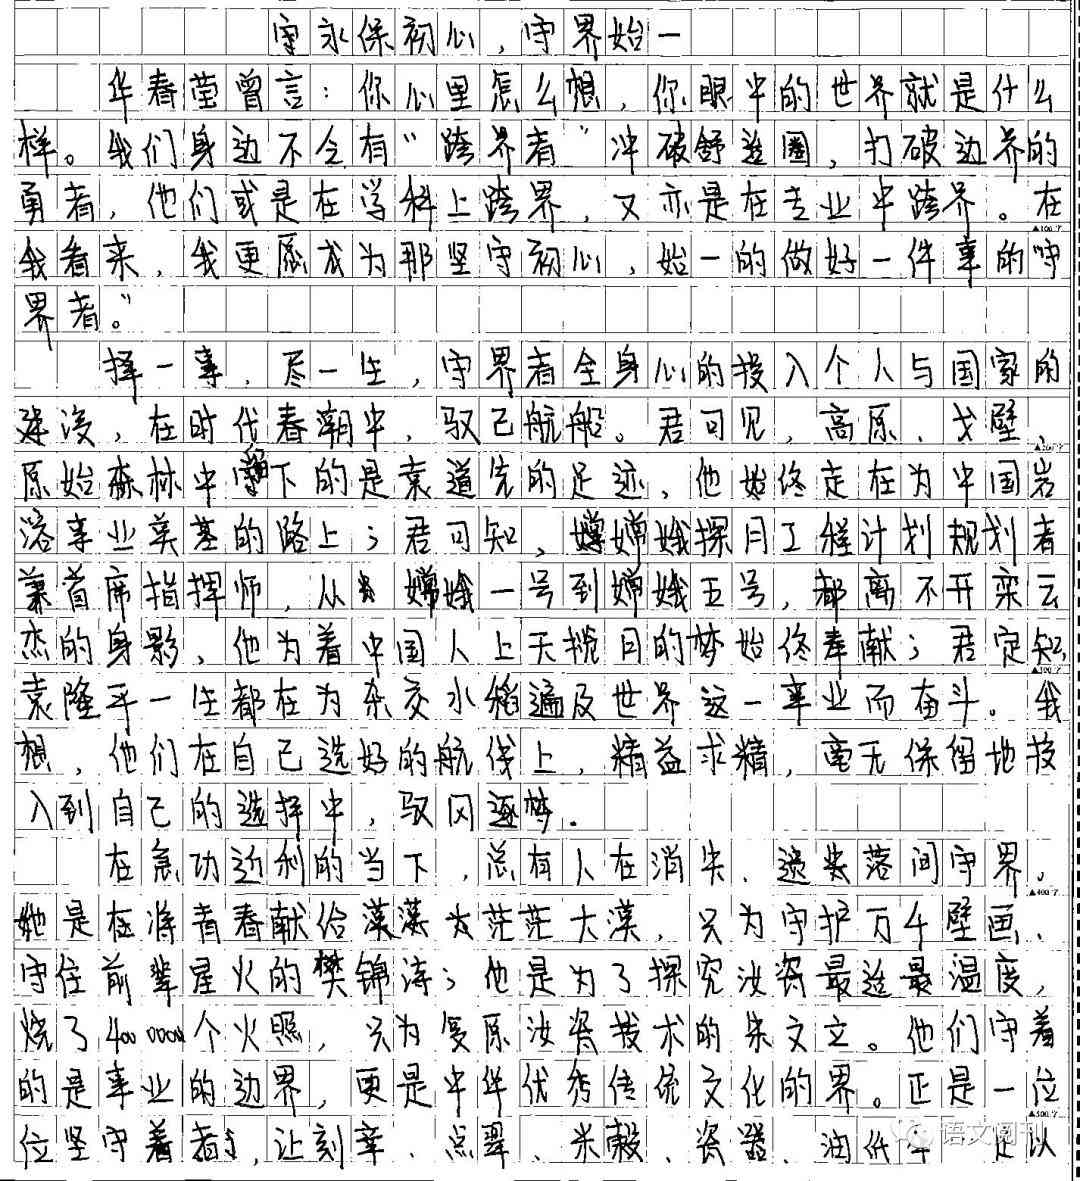 守永保初心，守界始一
华春莹曾言：你心里怎么想，你眼中的世界就是什么
样。我们身边不仝有“跨界者”冲破舒适圈，打破边界的
勇者，他们或是在学科上跨界，又亦是在专业中跨界。在
我看来，我更愿成为那坚守初心，始一的做好一件事的“守
界者。”
择一事，尽一生，守界者全身心的投入个人与国家的
建设，在时代春潮中，驭己航船。君可见，高原、戈壁、
原始森林中留下的是袁道先的足迹，他始终走在为中国岩
溶事业奠基的路上；君可知，嫦娥探月工程计划规划者
兼首席指挥师，从嫦娥一号到嫦娥五号，都离不开栾云
杰的身影，他为着中国人上天揽月的梦始终奉献；君定知，
袁隆平一生都在为杂交水稻遍及世界这一事业而奋斗。我
想，他们在自己选好的航线上，精益求精，毫无保留地投
入到自己的选择中，驭风逐梦。
在急功近利的当下，总有人在消失、遗失落间守界。
她是在将青春献给茫茫大漠，只为守护万千壁画、
守住前辈星火的樊锦涛；他是为了探究汝瓷最适最温度，
烧了400000个火照，只为复原汝瓷技术的朱文立。他们守着
的是事业的边界，更是中华优秀传统文化的界。正是一位
位坚守着，让刻章、点翠、米毅、瓷器、油纸伞 足以
▲100字
▲200字
▲300字
▲400字
▲500字
语文阅刊